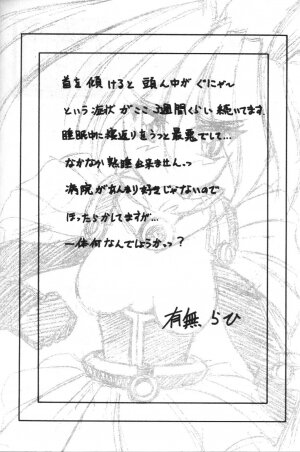 首を傾けると 頭ん中が ぐにゃ〜
という症状が ここ2週間くらい 続いてます.
睡眠中に寝返りをうつと最悪でして…
なかなか熟睡出来ませんっ
病院があんまり好きじゃないので
ほったらかしてますが…
一体何なんでしょうかっ?
有無らひ